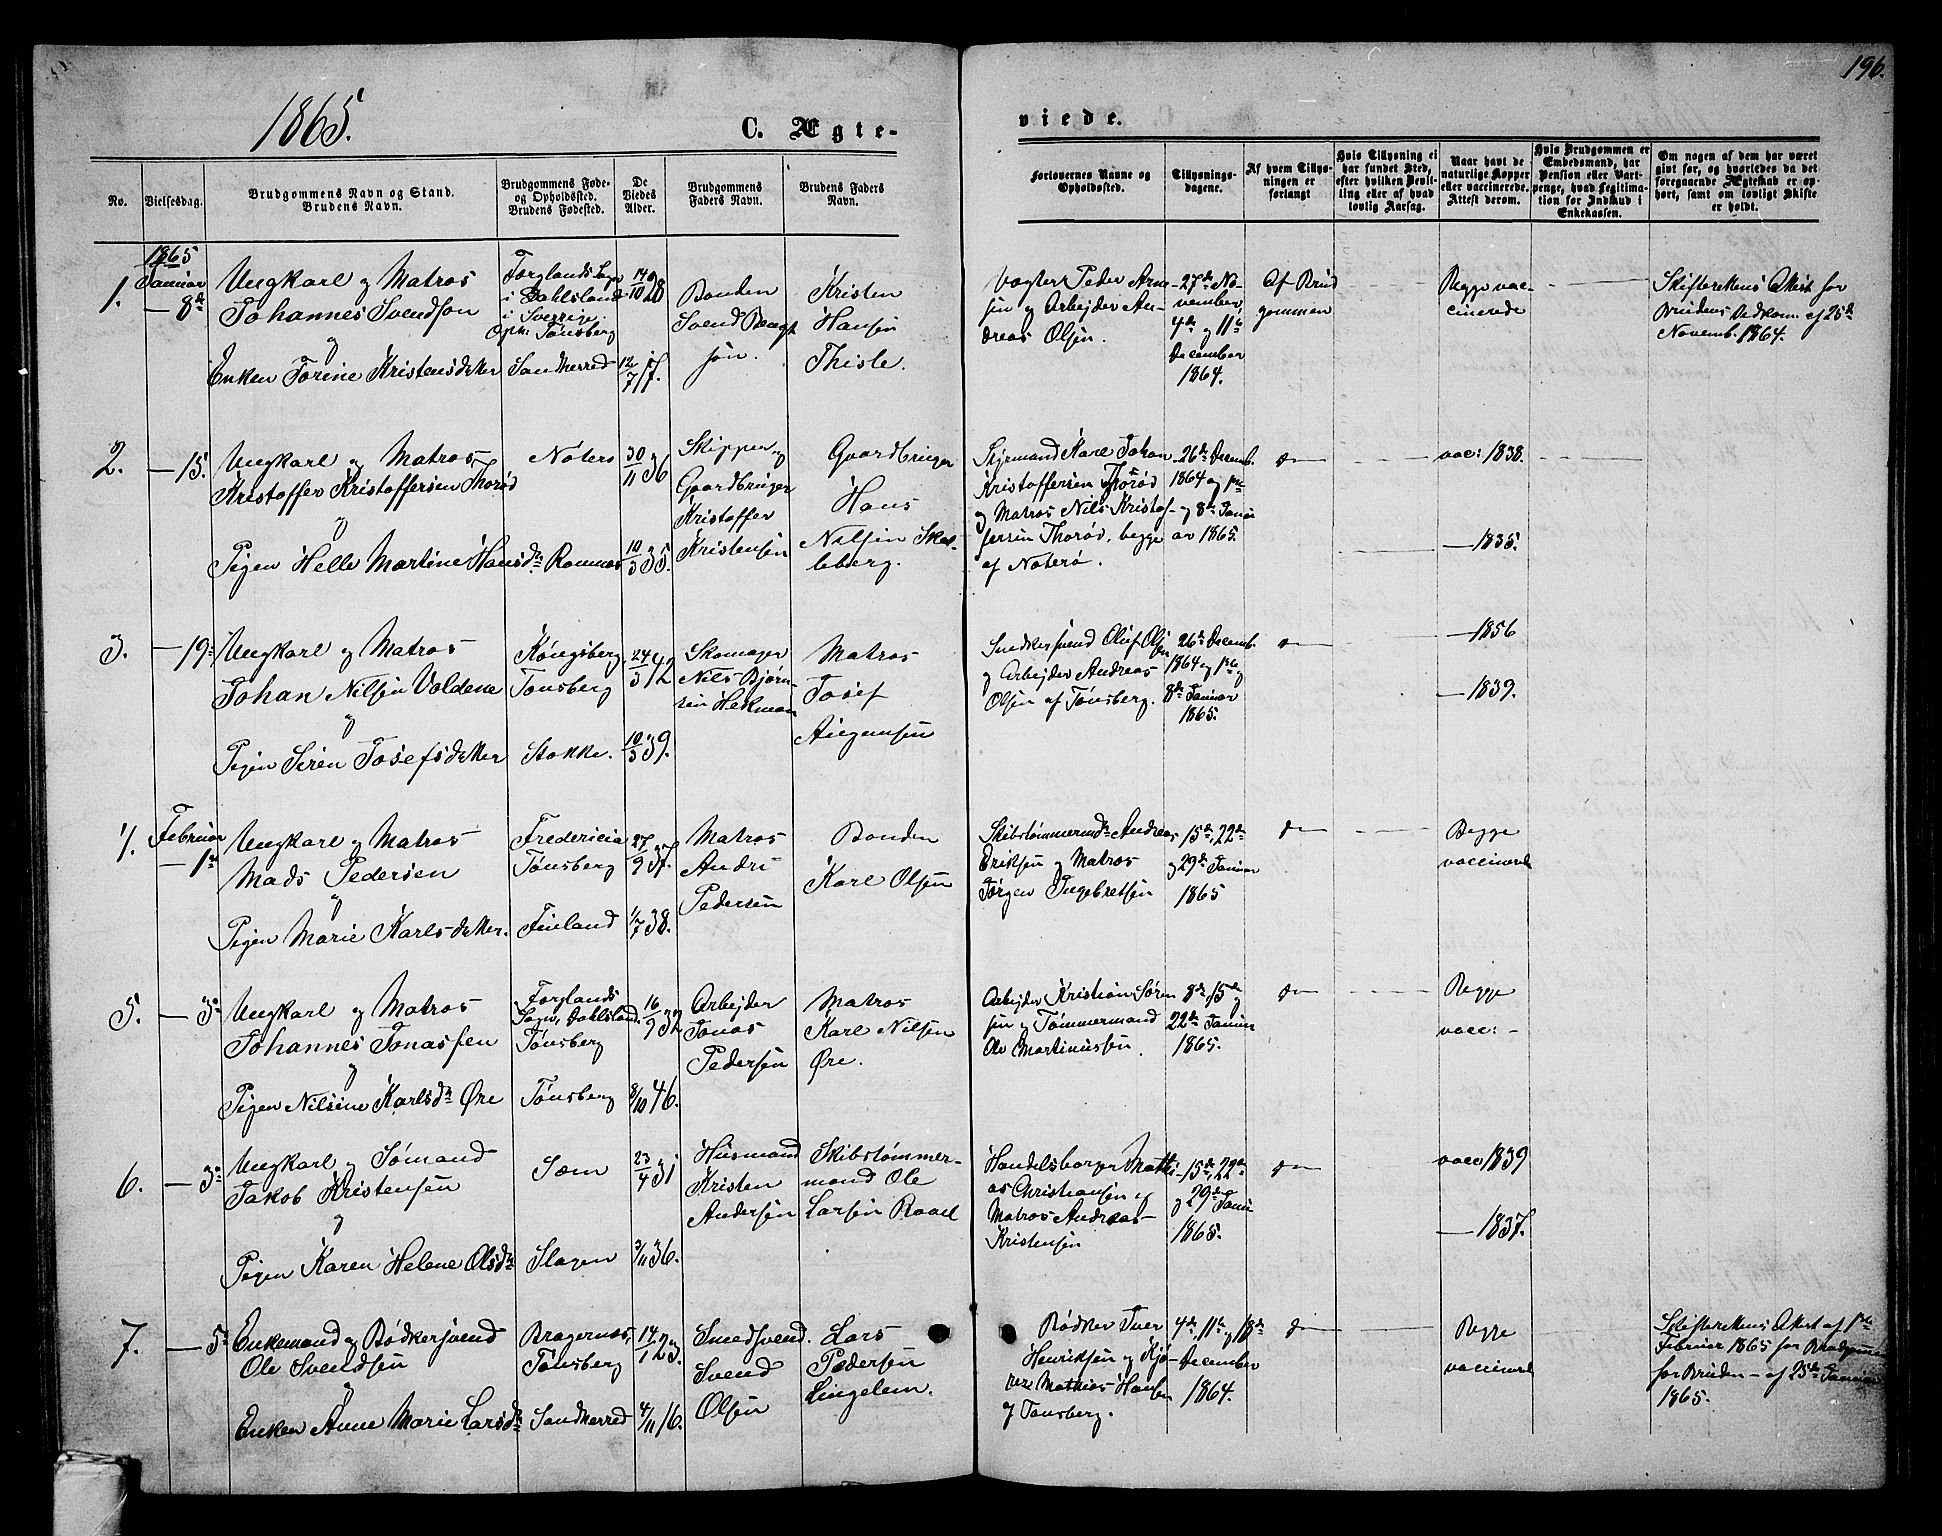 196.
1865.
C. Ægte-
viede.
No.
Vielsesdag.
Brudgommens Navn og Stand.
Brudens Navn.
Brudgommens Føde-
og Opholdssted.
Brudens Fødested.
De
Viedes
Alder.
Brudgommens
Faders Navn.
Brudens Faders
Navn.
Forlovernes Navne og
Opholdssted.
Tillysnings-
dagene.
Af hvem Tillys-
ningen er
forlangt
Hvis Tillysning ei
har fundet Sted,
efter hvilken Bevil-
ling eller af hvad
lovlig Aarsag.
Naar havt de
naturlige Kopper
eller vaccinerede.
Attest derom.
Hvis Brudgommen er
Embedsmand, har
Pension eller Vart-
penge, hvad Legitima-
tion for Indskud i
Enkekassen.
Om nogen af dem har været
gift før, og hvorledes da det
foregaaende Ægteskab er op-
hørt, samt om lovligt Skifte
er holdt.
1.
1865
Januar
— 8de
Ungkarl og Matros
Johannes Svendson
og
Enken Torine Kristensdatter
i Dahlsland
i Sverrige.
Oph. Tønsberg
Sandherred
14/10 28
12/7 57.
Bonden
Svend
søn.
Kristen
Hansen
Thisle.
Vogter Peder Arne-
sen og Arbejder An-
dreas Olsen.
27de No-
vember,
4de og 11te
December
1864.
Af Brud
gommen
Begge vac-
cinerede
Skifterettens Attest for
Brudens Vedkom. af 25de
Novemb. 1864.
2.
— 15.
Ungkarl og Matros
Kristoffer Kristoffersen Thorød
og
Pigen Helle Martine Hansdr
Noterø
Ramnæs
30/11 36
10/3 35.
Skipper og
Gaardbruger
Kristoffer
Kristensen
Gaardbruger
Hans
Nilsen
Styrmand Karl Johan
Kristoffersen Thorød
og Matros Nils Kristof-
fersen Thorød, begge
af Noterø.
26de Decemb.
1864 og 1ste
og 8de Janu
ar 1865.
do
vac: 1838.
— 1835.
3.
— 19.
Ungkarl og Matros
Johan Nilsen Voldene
og
Pigen Siren Josefsdatter
Kongsberg,
Tønsberg
Stokke.
24/3 42
10/3 39.
Skomager
Nils Bjørn-
sen Hekman
Matros
Josef
Snedkersvend Oluf Olsen
og Arbejder Andreas
Olsen af Tønsberg.
26de Decemb.
1864 og 1ste og
8de Januar
1865.
do
— 1856
— 1839.
4.
Februar
— 1ste
Ungkarl og Matros
Mads Pedersen
og
Pigen Marie Karlsdatter.
Fredericia
Tønsberg
Finland
27/9 37.
1/7 38.
Matros
Andri
Pedersen
Bonden
Karl Olsen
Skibstømmermd. Andreas
Eriksen og Matros
Jørgen Ingebretsen
15de, 22de
og 29de Januar
1865
do
Begge
vaccinerede
5.
— 3.
Ungkarl og Matros
Johannes Jonassen
og
Pigen Nilsine Karlsdr Øre
Sogn, Dahlsland.
Tønsberg
Tønsberg
16/9 32
8/10 46.
Arbejder
Jonas
Pedersen
Matros
Karl Nilsen
Øre.
Arbejder Kristian Søren
sen og Tømmermand
Ole Martinussen.
8de, 15de og
22de Januar
1865.
do
Begge
vacc: —
6.
— 3.
Ungkarl og Sømand
Jakob Kristensen
og
Pigen Karen Helene Olsdr
Sæm
Slagen
23/4 31
3/11 36.
Husmand
Kristen
Andersen
Skibstømmer-
mand Ole
Larsen Raael
Handelsborger Mathi-
as Christiansen og
Matros Andreas
Kristensen
15de, 22de
og 29de Januar
1865.
do
vacc. 1839
— 1837.
7.
— 5.
Enkemand og Bødkersvend
Ole Svendsen
og
Enken Anne Marie Larsdr
Bragernæs,
Tønsberg
Sandherred
14/12 3.
4/11 16.
Smedsvend
Svend
Olsen
Lars
Pedersen
Lingelem.
Bødker Iver
Henriksen og Kjø-
rer Mathias Hansen
af Tønsberg.
4de, 11te og 18de
December
1864.
do
Begge
vaccinerede
Skifterettens Attest af 1ste
Februar 1865 for Brudgommen
for Bruden — af 25de Januar
1865.